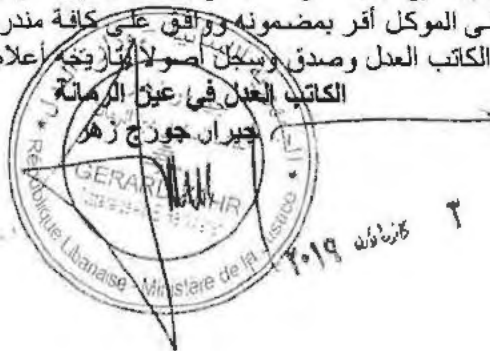 ى الموكل أقر بمضمونه ووافق على كافة مندر
الكاتب العدل وصدق وسجل أصولاً بتاريخه أعلاه
الكاتب العدل في عين الرمانة
جيرار جورج زهر
GERARD
HR
République Libanaise - Ministère de la Justice
٣ كانون الأول ٢٠١٩